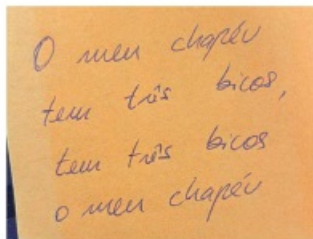 O meu chapéu
tem três bicos,
tem três bicos
o meu chapéu